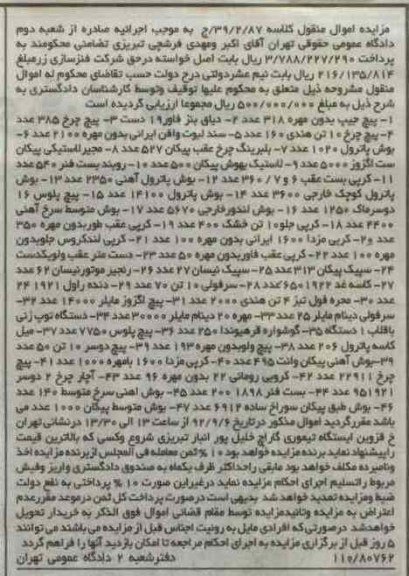 مزایده اموال منقول کلاسه ۳۹/۲/۸۷/ج به موجب اجرائیه صادره از شعبه دوم
دادگاه عمومی حقوقی تهران آقای اکبر ومهدی فرشچی تبریزی تضامنی محکومند به
پرداخت ۳/۷۸۸/۲۲۷/۲۹۰ ریال بابت اصل خواسته درحق شرکت فنرسازی زرمبلغ
۲۱۶/۱۳۵/۸۱۴ ریال بابت نیم عشردولتی درح دولت حسب تقاضای محکوم له اموال
منقول مشروحه ذیل متعلق به محکوم علیها توقیف وتوسط کارشناسان دادگستری به
شرح ذیل به مبلغ ۵۰۰/۰۰۰/۰۰۰ ریال مجموعا ارزیابی گردیده است
۱- پیچ جیپ بدون مهره ۳۱۸ عدد ۲- دیاق بنز خاور۱۹ دست ۳- پیچ چرخ ۳۸۵ عدد
۴- پیچ چرخ ۱۰ تن هندی ۱۶۰ عدد ۵- سند لبوت واقن ایرانی بدون مهره ۲۱۰۰ عدد ۶-
بوش پاترول ۱۰۲۰ عدد ۷- بلبرینگ چرخ عقب پیکان ۵۲۷ عدد ۸- مجیرلاستیکی پیکان
ست اگزوز ۵۰۰۰ عدد ۹- لاستیک بهوش پیکان ۵۰۰ عدد ۱۰- روبند بست فنر ۵۴۰ عدد
۱۱- کرپی بست عقب ۶ و ۷ / ۳۶۰ عدد ۱۲- بوش پاترول آهنی ۲۳۵۰ عدد ۱۳- بوش
پاترول کوچک خارجی ۳۶۰۰ عدد ۱۴- بوش پاترول ۱۴۱۰۰ عدد ۱۵- پیچ پلوس ۱۶
دوسرماک ۱۲۵۰ عدد ۱۶- بوش لندورخارجی ۵۶۷۰ عدد ۱۷- بوش متوسط سرخ آهنی
۴۴۰۰ عدد ۱۸- کرپی جلو۱۰ تن خشک ۴۰۰ عدد ۱۹- کرپی عقب طوربدون مهره ۳۵۰
عدد ۲۰- کرپی مزدا ۱۶۰۰ ایرانی بدون مهره ۱۰۰ عدد ۲۱- کرپی لندکروس جلوبدون
مهره ۱۰۰ عدد ۲۲- کرپی عقب فاوربدون مهره ۵۰ عدد ۲۳- دست متر عقب ولویکدست
۲۴- سپیک پیکان ۳۱۳ عدد ۲۵- سپیک نیسان ۲۷ عدد ۲۶- زنجیر موتورنیسان ۶۲ عدد
۲۷- کاسه نمد ۶۵۰۱۹۲۲عدد ۲۸- سرفولی ۱۰ تن ۷۰ عدد ۲۹- دنده راول ۱۹۲۱ ۲۴
عدد ۳۰- محره فول تیز ۴ تن هندی ۲۰۰۰ عدد ۳۱- پیچ اگزوز مایلر ۱۴۰۰۰ عدد ۳۲-
سرفولی دینام مایلر ۲۵ عدد ۳۳- مهره ۲۰ دینام مایلر ۳۰۰۰۰عدد ۳۴- دستگاه توپ زنی
باقلاب ۱ دستگاه ۳۵- گوشواره فرهیوندا ۲۵۰ عدد ۳۶- پیچ پلوس ۷۷۵۰ عدد ۳۷- میل
کاسه پاترول ۲۰۶ عدد ۳۸- پیچ ولوبدون مهره ۱۹۳ عدد ۳۹- پیچ دوسر ۱۰ تن ۵۰ عدد
۳۹-بوش آهنی پیکان وانت ۴۹۵ عدد ۴۰- کرپی مزدا ۱۶۰۰ بامهره ۱۰۰۰ عدد ۴۱- پیچ
چرخ ۲۲۹۱۱ عدد ۴۲- کروبی رومانی ۲۲ بدون مهره ۹۶ عدد ۴۳- آچار چرخ ۲ دوسر
۹۵۱۹۲۱ عدد ۴۴- بست فنر ۱۸۹۸ ۲۰۰ عدد ۴۵- بوش اهنی سرخ متوسط ۱۴۰ عدد
۴۶- بوش طبق پیکان سوراخ ساده ۶۹۱۲ عدد ۴۷- بوش متوسط پیکان ۱۰۰۰ عدد می
باشد مقررگردید اموال مذکور درتاریخ ۹۲/۹/۶ از ساعت ۱۳ الی ۱۳/۳۰ درنشانی تهران
خ قزوین ایستگاه تیموری گاراج خلیل پور انبار تبریزی شروع وکسی که بالاترین قیمت
راپیشنهاد نماید برنده مزایده خواهد بود ۱۰ % ثمن معامله فی المجلس ازبرنده مزایده اخذ
ونامبرده مکلف خواهد بود مابقی راحداکثر ظرف یکماه به صندوق دادگستری واریز وفیش
مربوط راتسلیم اجرای احکام مزایده نماید درغیراین صورت ۱۰ % پرداختی به نفع دولت
ضبط ومزایده تمدید خواهد شد بدیهی است درصورت پرداخت کل ثمن درموعد مقررعدم
اعتراض به مزایده وتائیدمزایده توسط مقام قضائی اموال فوق الذکر به خریدار تحویل
خواهدشد درصورتی که افرادی مایل به رونیت اجناس قبل از مزایده می باشند می توانند
۵ روز قبل از برگزاری مزایده به اجرای احکام مراجعه تا امکان بازدید آنها را فراهم گردد
۱۱۰/۸۰۷۶۲ دفترشعبه ۲ دادگاه عمومی تهران